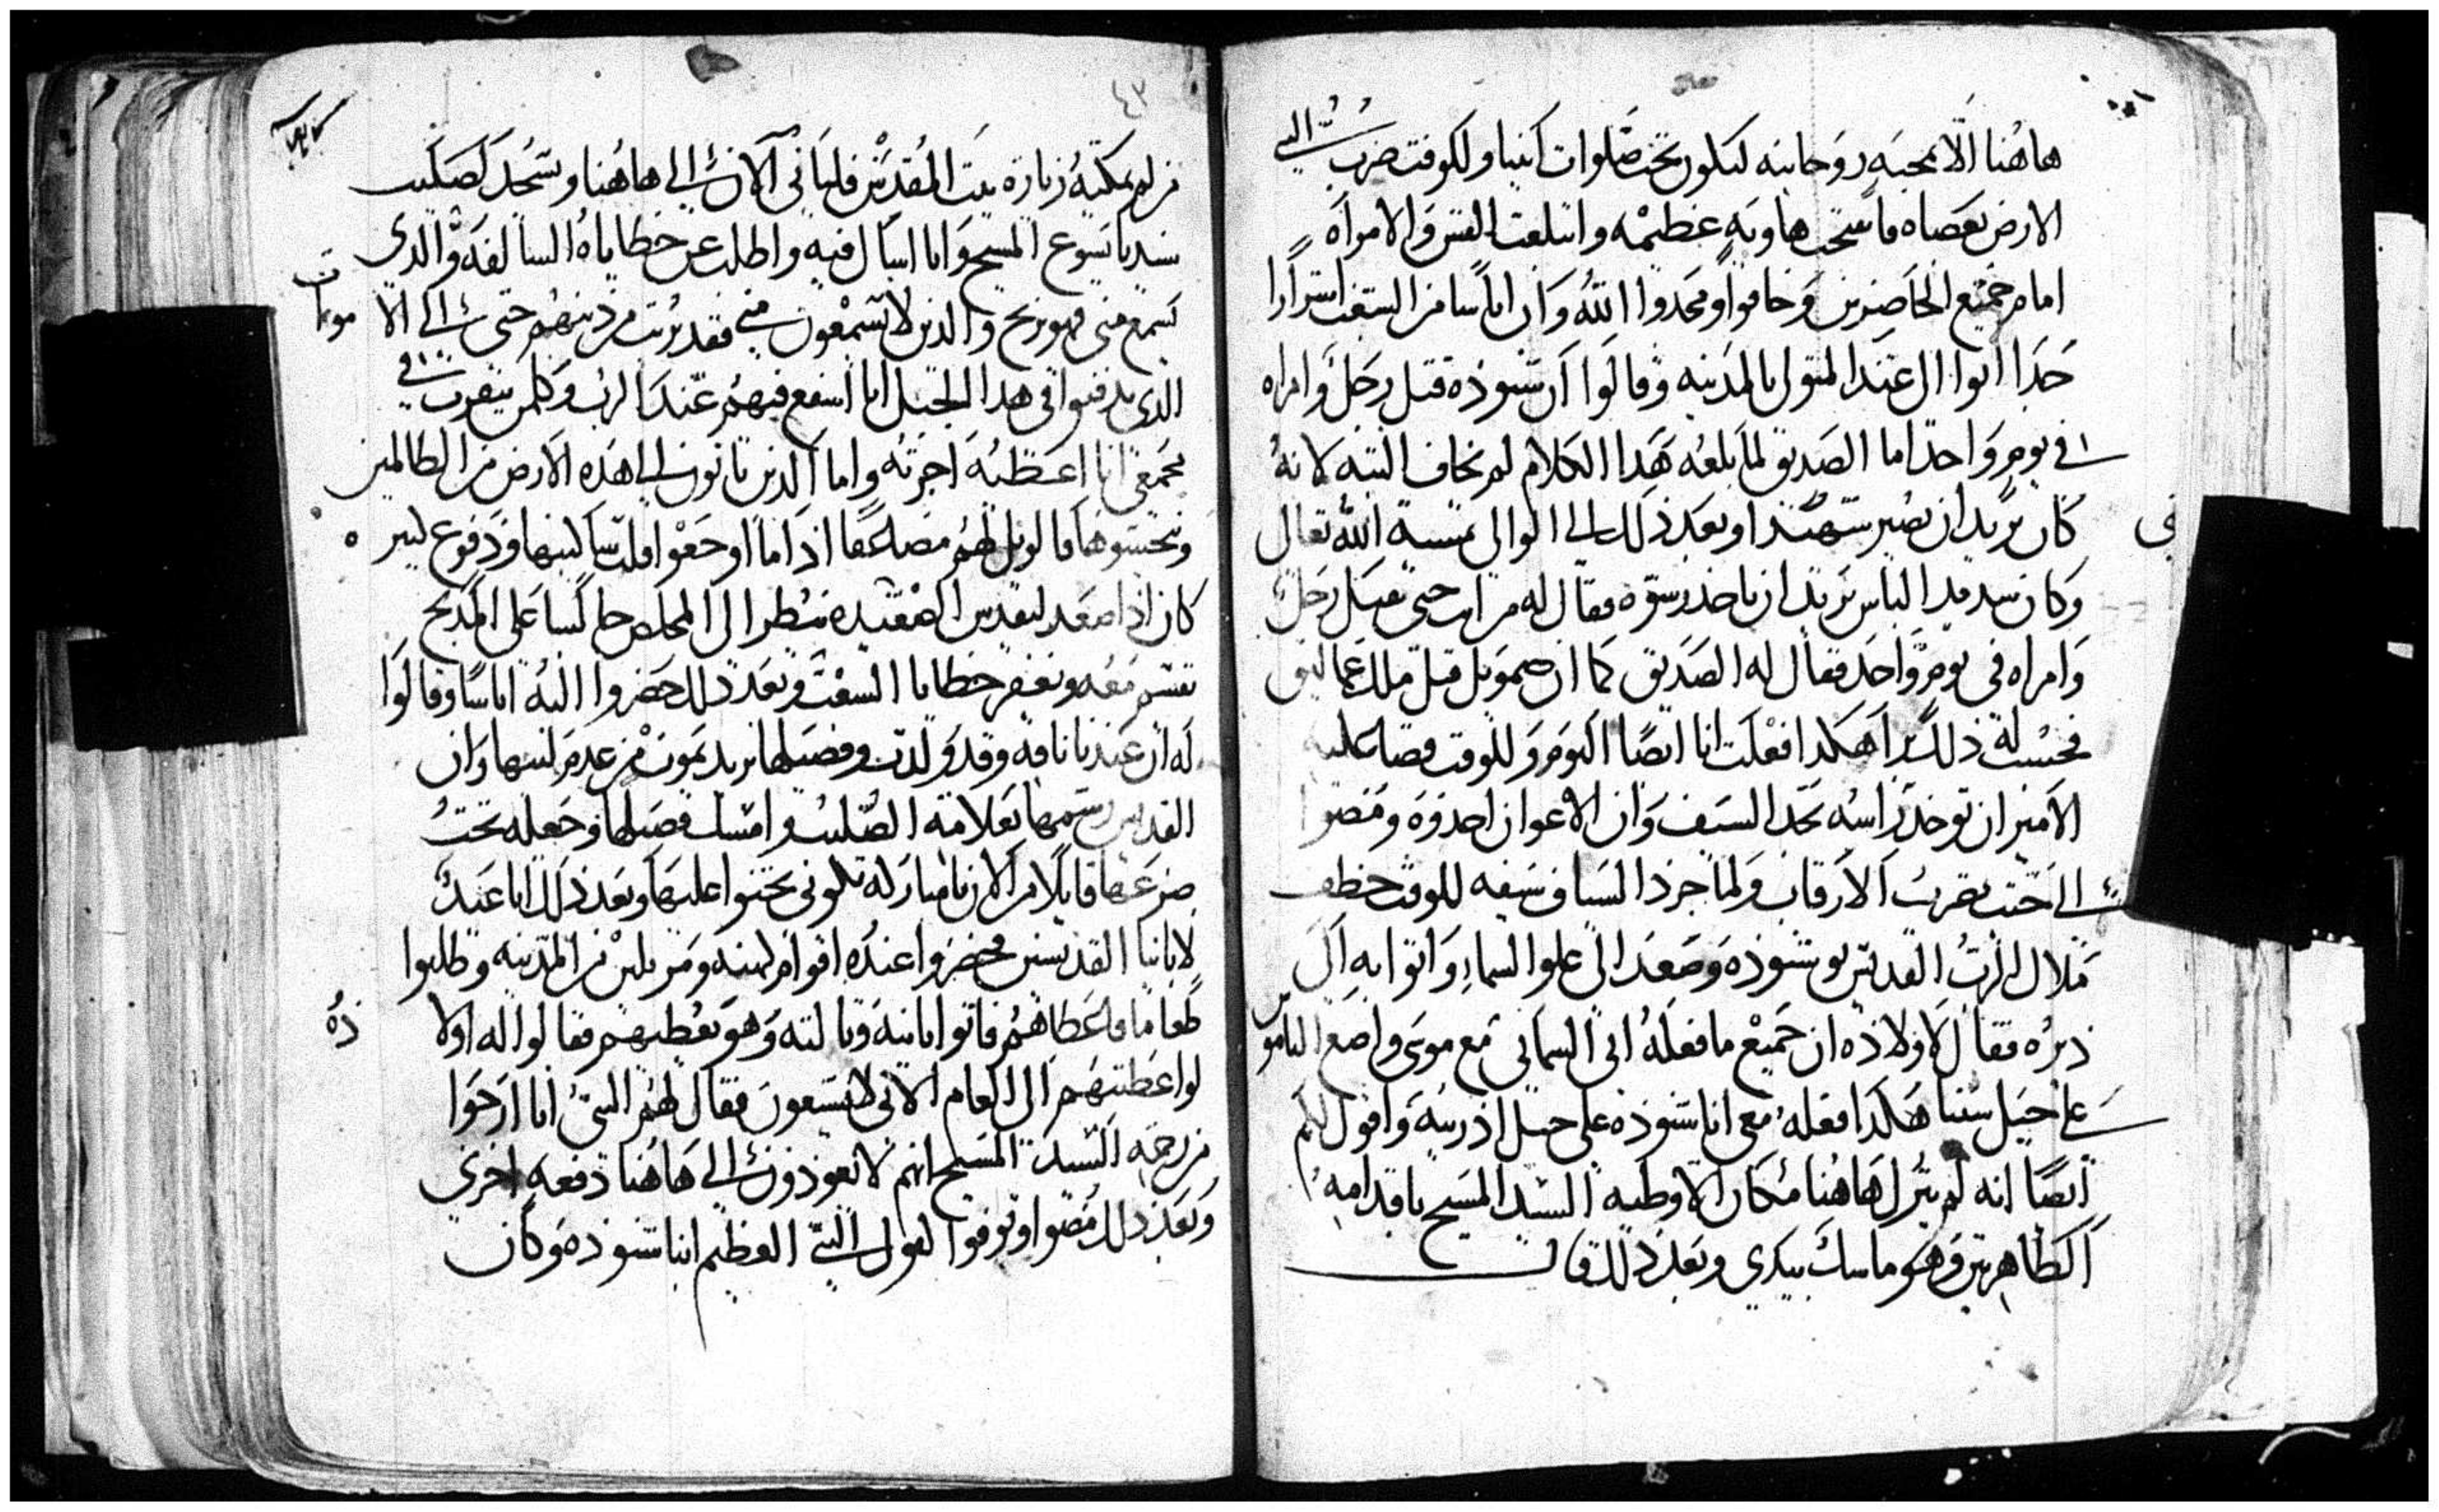 هاهنا الا بمحبه روحانيه ليكون تحت صلوات ابينا وللوقت ضرب النبي
الارض بعصاه فانفتحت هاويه عظيمه وابتلعت القس والامراه
امام جميع الحاضرين وخافوا ومجدوا الله وان اناسا من اشرارا
جدا اتوا الى عند المتولى بالمدينه وقالوا ان شنوده قتل رجل وامراه
في يوم واحد اما الصديق لما بلغه هدا الكلام لم يخاف البته لانه
كان يريد ان يصير شهيدا وبعد ذلك الى الوالى بمشية الله تعالى
وكان الناس يريد ان ياخد رشوه فقال له من امر حتى تقتل رجل
وامراه في يوم واحد فقال له الصديق كما ان صموييل قتل ملك عماليق
فحسب له ذلك برا هكدا فعلت انا ايضا اليوم وللوقت قضا عليه
الامير ان توخد راسه بحد السيف وان الاعوان اخدوه ومضوا
الى حيت تضرب الارقاب ولما جرد السياف سيفه للوقت خطف
ملاك الرب القديس شنوده وصعد الى علو السماء واتوا به الى
ديره فقال لاولاده ان جميع ما فعله ابي السماني مع موسى واضع الناموس
على جبل سينا هكدا فعله معي انا شنوده على جبل ادريبه واقول لكم
ايضا انه لم يترك هاهنا مكان الا وطيه السيد المسيح باقدامه
الطاهرتين وهو ماسك بيدي وبعد ذلك قال
٤٣
من لم يمكنه زيارة بيت المقدس فلياتي الان الى هاهنا ويسجد لصليب
سيدنا يسوع المسيح وانا اسال فيه واطلب عن خطاياه السالفه والدي
يسمع مني فهو يربح والدين لا يسمعون مني فقد بريت من دينهم حتى الى الاموات
الدي يدفنوا في هدا الجبل انا اشفع فيهم عند الرب وكلمن يتقرب في
مجمعي انا اعطيه اجرته واما الدين ياتون الى هده الارض من الظالمين
وينجسوها فالويل لهم مضاعفا اذا ما اوجعوا قلب ساكنيها ودفوع كتير
كان اذا صعد ليقدس الصعيده ينظر الى المخلص جالسا على المدبح
يقسم معه ويغفر خطايا الشعب وبعد ذلك حضروا اليه اناسا وقالوا
له ان عندنا ناقه وقد ولدت وفصيلها يريد يموت من عدم لبنها وان
القديس رسمها بعلامة الصليب وامسك فصيلها وجعله تحت
ضرعها قايلا من الان يا مباركه تكوني تحننوا عليها وبعد ذلك انا عيد
لابانينا القديسين فحضروا عنده اقوام من المدينه وطلبوا
طعاما فاعطاهم فاتوا تانيه وتالته وهو يعطيهم فقالوا له اولاده
لو اعطيتهم الى العام الاتي لا يشبعون فقال لهم النبي انا ارجوا
من رحمة السيد المسيح انهم لا يعودون الى هاهنا دفعه اخرى
وبعد ذلك مضوا وتوفوا لقول النبي العظيم انبا شنوده وكان